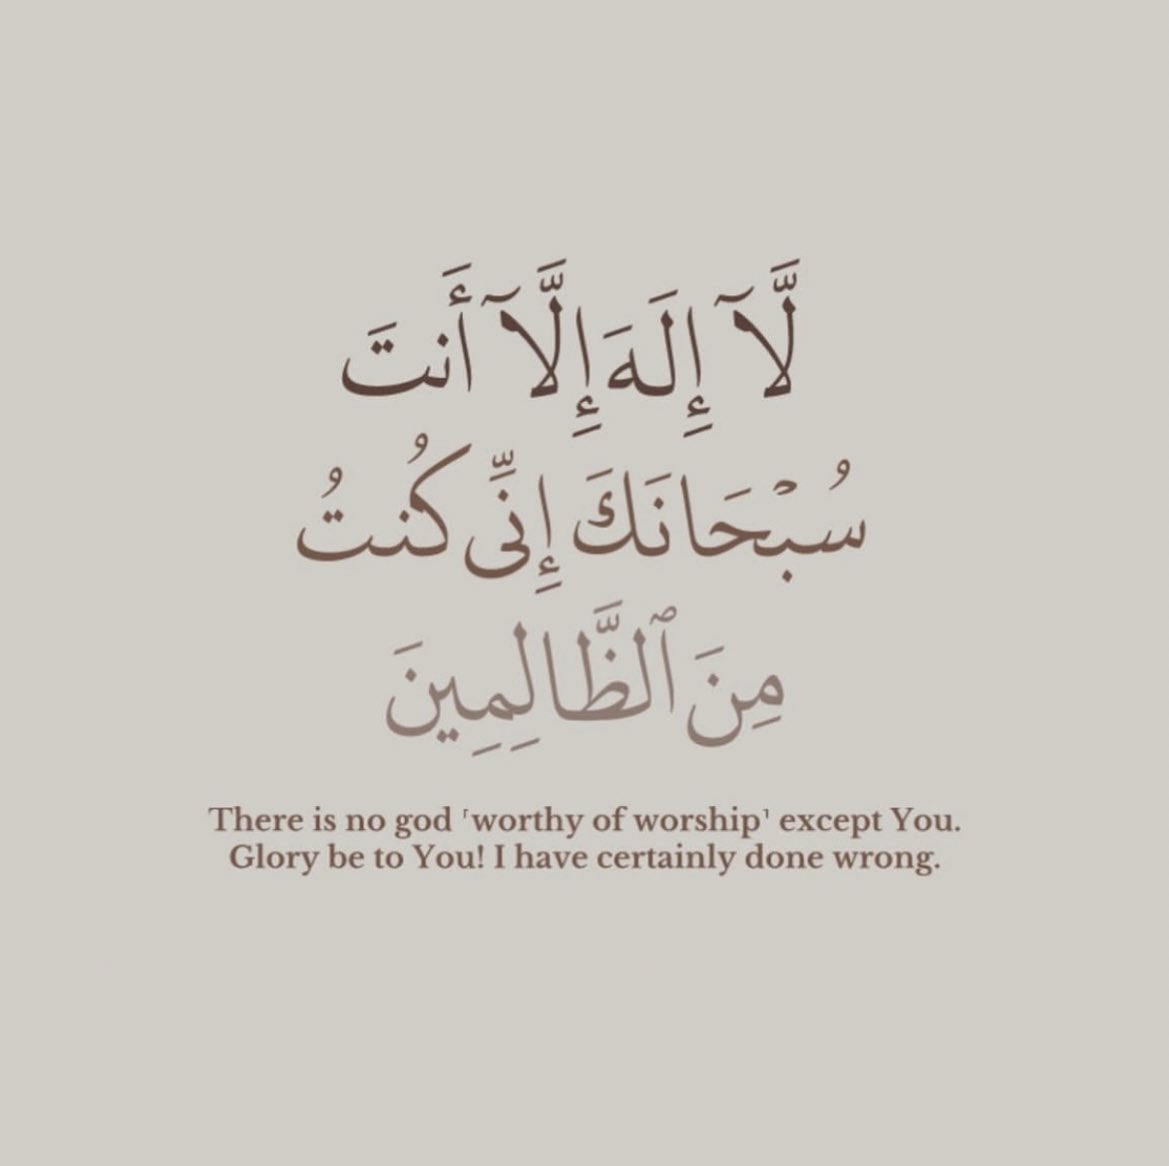 لَّآ إِلَهَ إِلَّآ أَنتَ
سُبْحَانَكَ إِنِّى كُنتُ
مِنَ ٱلظَّالِمِينَ
There is no god ˹worthy of worship˺ except You.
Glory be to You! I have certainly done wrong.